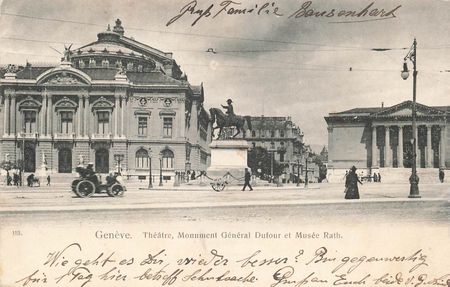 Familie Bausenhart
113. Genève. Théâtre, Monument Général Dufour et Musée Rath.
Wie geht es Dir, wieder besser? Bin gegenwärtig
für 1 Tag hier betreff Grüße Euch beide